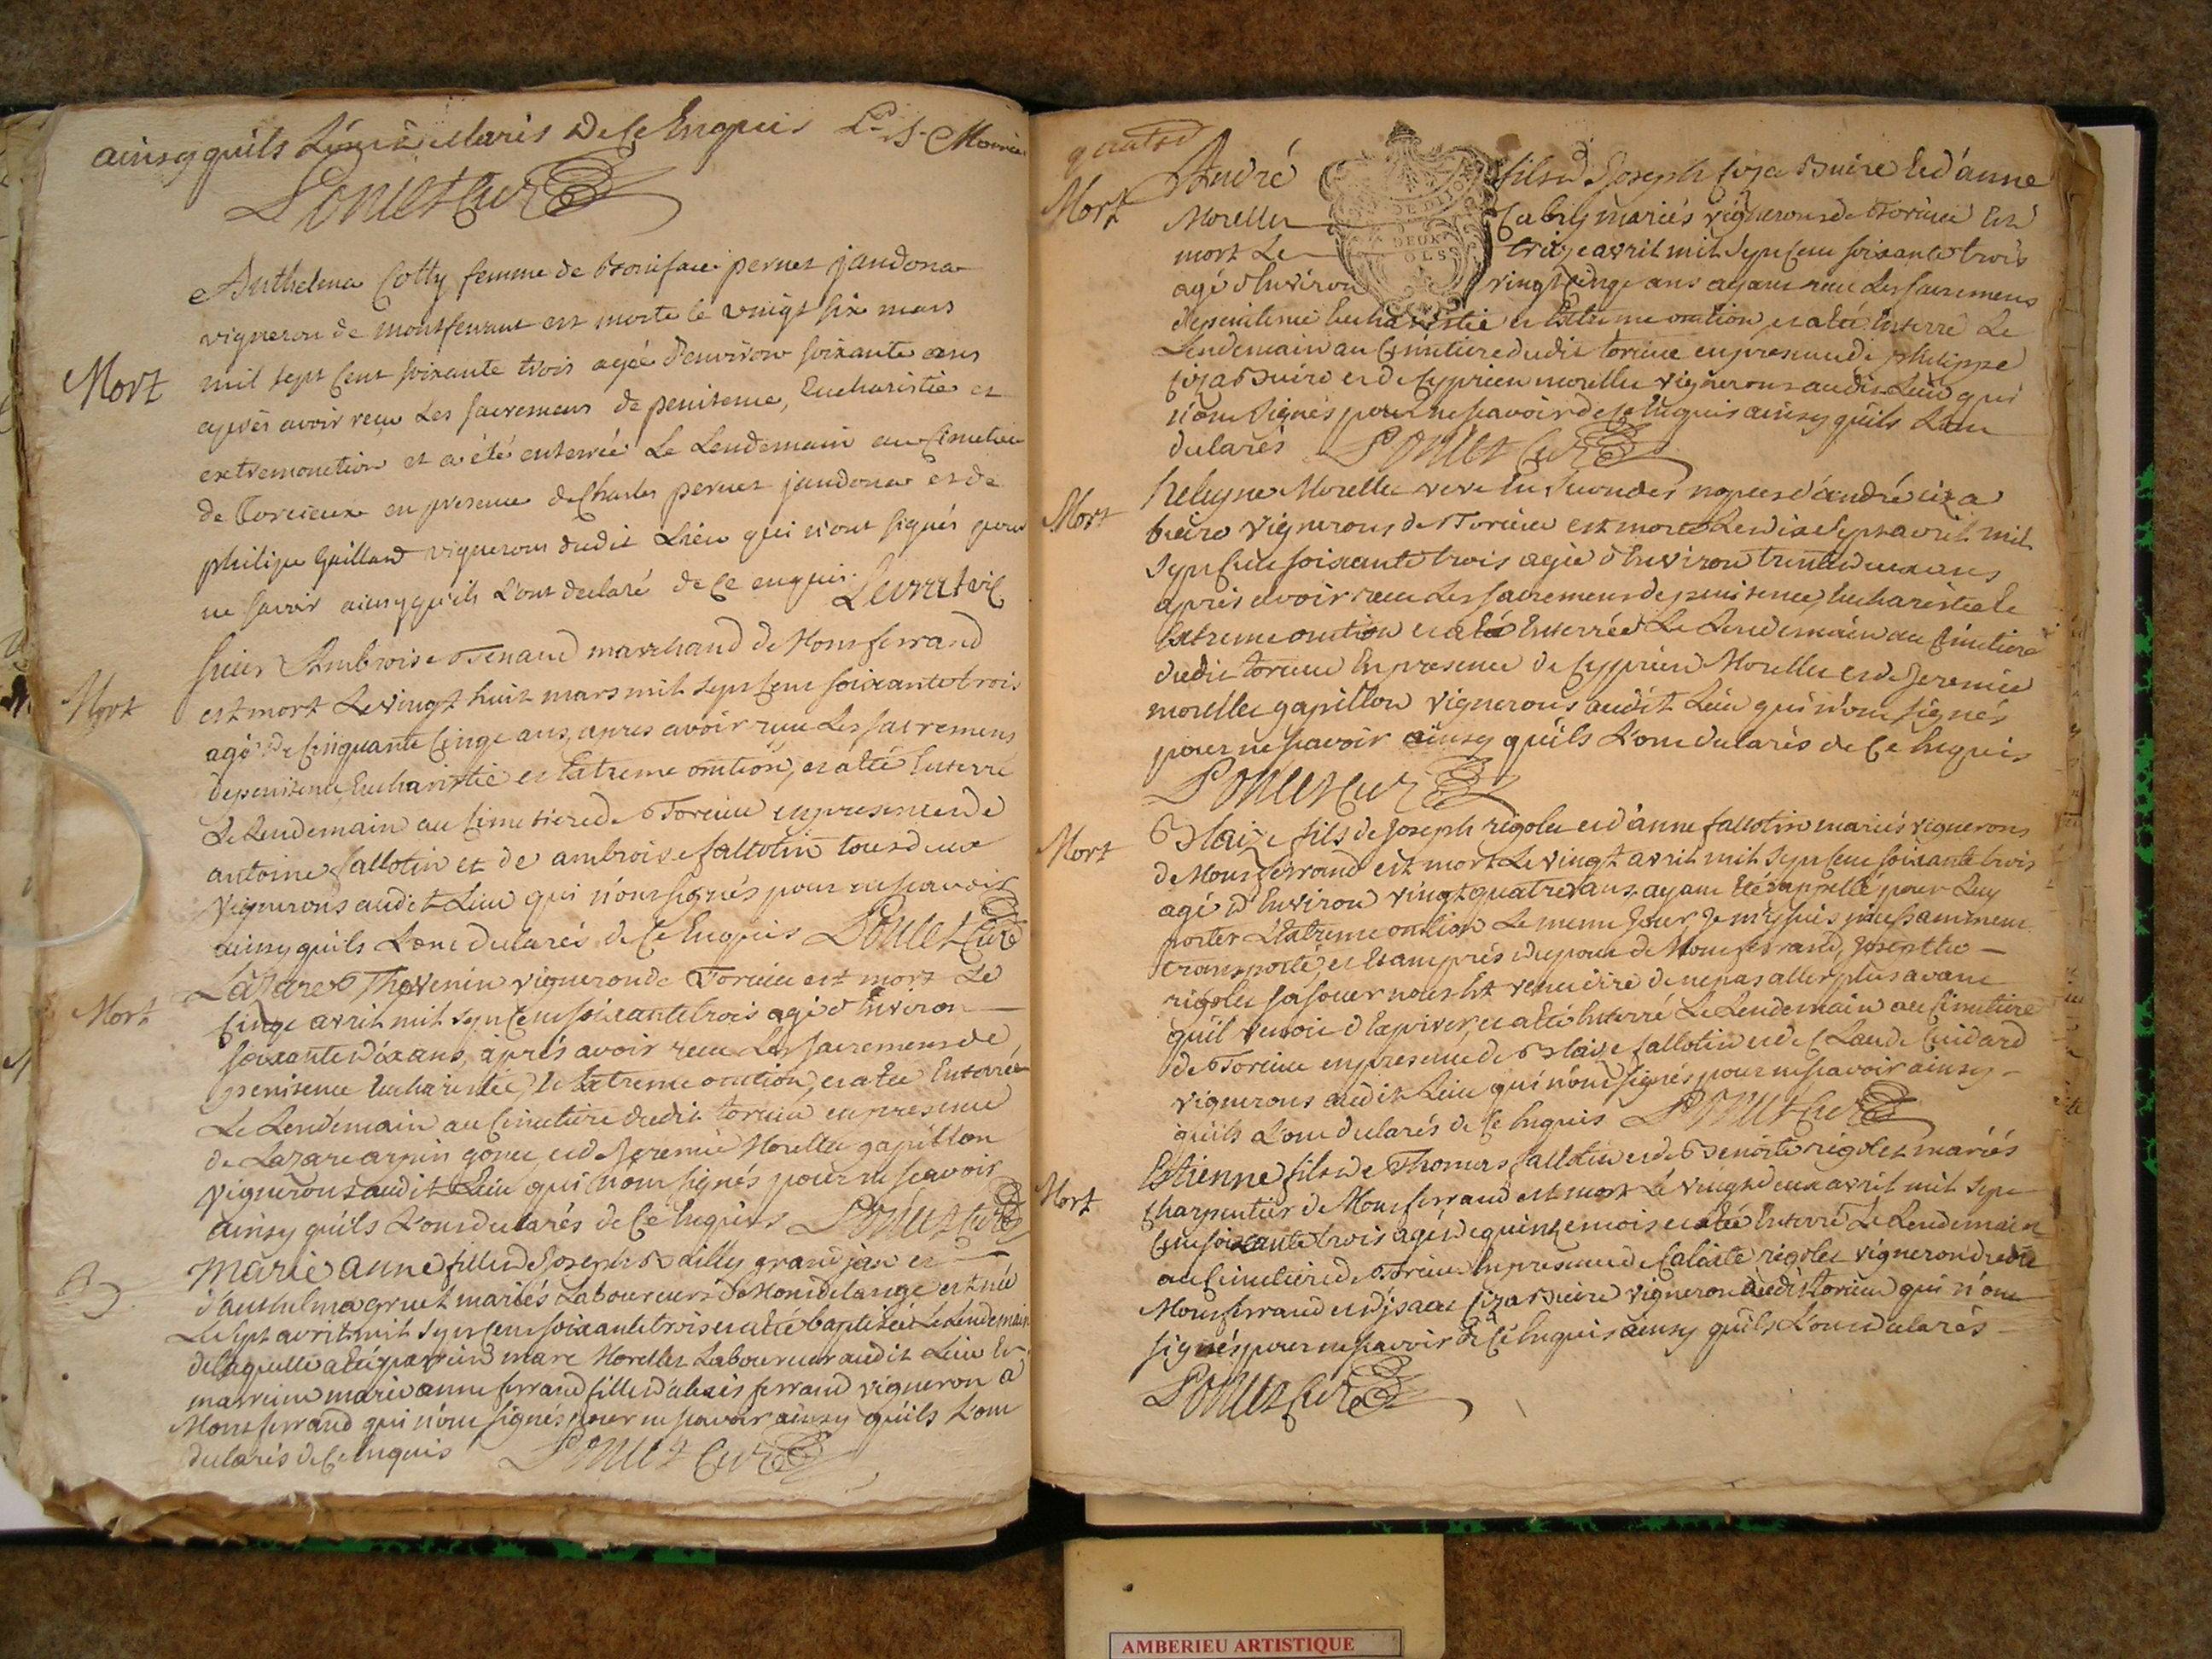 ainsy quils L'ont declarés De Ce Enquis Ln S. Mauric
Ponset Curé
Anthelma Cotty femme de Boniface pernet jandona
vigneron de montferrant est morte le vingt six mars
Mort
mil sept Cent soixante trois agée d'environ soixante ans
après avoir reçu Les sacremens de penitence, Eucharistie et
extremonction et a été enterrée Le Lendemain au Cimetiere
de Torcieux en presence de Charles pernet jandona et de
philipe Gaillard vignerons dudit Lieu qui n'ont signés pour
ne savoir ainsy qu'ils L'ont declaré de Ce enquis.
sieur Ambroise Tenand marchand de Monsferrand
Mort
est mort Le vingt huit mars mil sept Cent soixante trois
agé De Cinquante Cinqe ans, apres avoir receu Les sacremens
de penitence Eucharistie et Extreme onction, et a été Enterré
Le Lendemain au Cimetiere de Torcieu en presence de
antoine fallotin et de ambroise fallotin tous deux
vignerons audit Lieu qui n'ont signés pour ne scavoir
ainsy quils L'ont declarés de Ce Enquis Ponset Curé
Lazare Thevenin vigneron de Torcieu est mort Le
Mort
Cinqe avril mil sept Cent soixante trois agé d'Environ
soixante dix ans, après avoir receu Les sacremens de
penitence Eucharistie, Et Extreme onction, et a été Enterré
Le Lendemain au Cimetiere dudit torcieu en presence
de Lazare arpin gonet et de Jeremie Morellet gapillon
vignerons audit Lieu qui n'ont signés pour ne scavoir
ainsy quils L'ont declarés de Ce Enquis Ponset Curé
Marie anne fille de Joseph Bailly grand jan et
B
d'anthelma gruet mariés Laboureurs de Montdelange est née
Le sept avril mil sept Cent soixante trois et a été baptisée Le Lendemain
de laquelle a été parrain marc Morellet Laboureur audit Lieu Et
marraine marie anne ferrand fille d'alexis ferrand vigneron a
Monsferrand qui n'ont signés pour ne scavoir ainsy quils L'ont
declarés de Ce Enquis Ponset Curé
Mort
André fils de Joseph Ciza Buire Et d'anne
Morellet Cabry mariés vignerons de Torcieu Est
DE DIJON
DEUX
SOLS
mort Le treize avril mil sept Cent soixante trois
agé d'Environ vingt Cinqe ans ayant receu Les sacremens
de penitence Eucharistie et Extreme onction, et a été Enterré Le
Lendemain au Cimetiere dudit torcieu en presence de philippe
Ciza Buire et de Cyprien morellet vignerons audit Lieu qui
n'ont signés pour ne scavoir de Ce Enquis ainsy quils L'ont
declarés Ponset Curé
helugne Morellet veve En secondes nopces d'andré ciza
Mort
buire vignerons de Torcieu est morte Le dix sept avril mil
sept Cent soixante trois agée d'Environ trente deux ans
après avoir receu Les sacremens de penitence, Eucharistie Et
Extreme onction et a été Enterrée Le Lendemain au Cimetiere
dudit torcieu En presence de Cyprien Morellet et de Jeremie
morellet gapillon vignerons audit Lieu qui n'ont signés
pour ne scavoir ainsy quils L'ont declarés de Ce Enquis
Ponset Curé
Blaize fils de Joseph rigolet et d'anne fallotin mariés vignerons
Mort
de Monsferrand est mort Le vingt avril mil sept Cent soixante trois
agé d'Environ vingt quatre ans, ayant Eté appellé pour Luy
porter L'Extreme onction Le meme jour, Je m'y suis incessamment
transporté, et Etant près du pont de Monsferrand, Josephte
rigolet sa soeur nous Est venu dire de ne pas aller plus avant
quil venoit d'Expirer, et a été Enterré Le Lendemain au Cimetiere
de Torcieu en presence de Blaize fallotin et de Claude Cuidard
vignerons audit Lieu qui n'ont signés pour ne scavoir ainsy
quils L'ont declarés de Ce Enquis Ponset Curé
Estienne fils de Thomas fallotin et de Benoite rigolet mariés
Mort
charpentier de Monsferrand est mort Le vingt deux avril mil sept
Cent soixante trois agé de quinze mois et a été Enterré Le Lendemain
au Cimetiere de Torcieu En presence de Calixte rigolet vigneron dudit
Monsferrand et d'isaac Ciza Buire vigneron dudit torcieu qui n'ont
signés pour ne scavoir de Ce Enquis ainsy quils L'ont declarés
Ponset Curé
AMBERIEU ARTISTIQUE